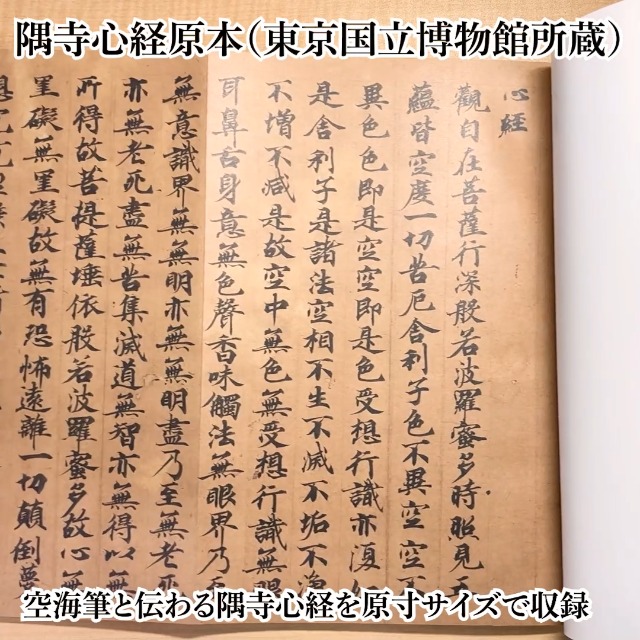 隅寺心経原本（東京国立博物館所蔵）
心経
觀自在菩薩行深般若波羅蜜多時照見五
蘊皆空度一切苦厄舍利子色不異空空不
異色色即是空空即是色受想行識亦復
是舍利子是諸法空相不生不滅不垢不淨
不増不減是故空中無色無受想行識無眼
耳鼻舌身意無色聲香味觸法無眼界乃至
無意識界無無明亦無無明盡乃至無老死
亦無老死盡無苦集滅道無智亦無得以無
所得故菩提薩埵依般若波羅蜜多故心無
罣礙無罣礙故無有恐怖遠離一切顛倒夢
空海筆と伝わる隅寺心経を原寸サイズで収録